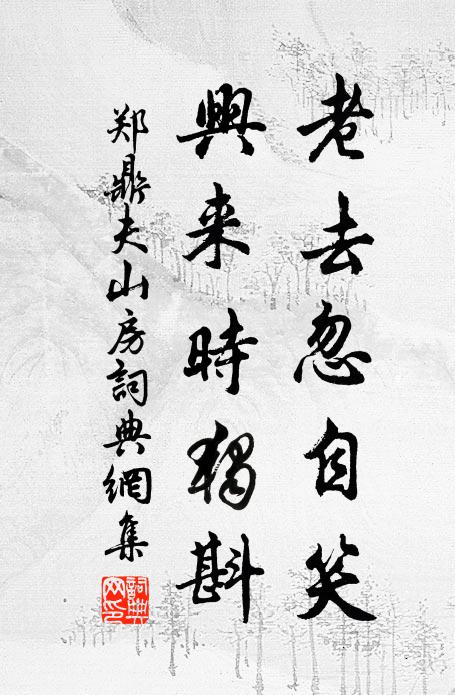 老去忽自笑
興来時獨斟
郑鼎夫山房詞典網集
詞典
网印